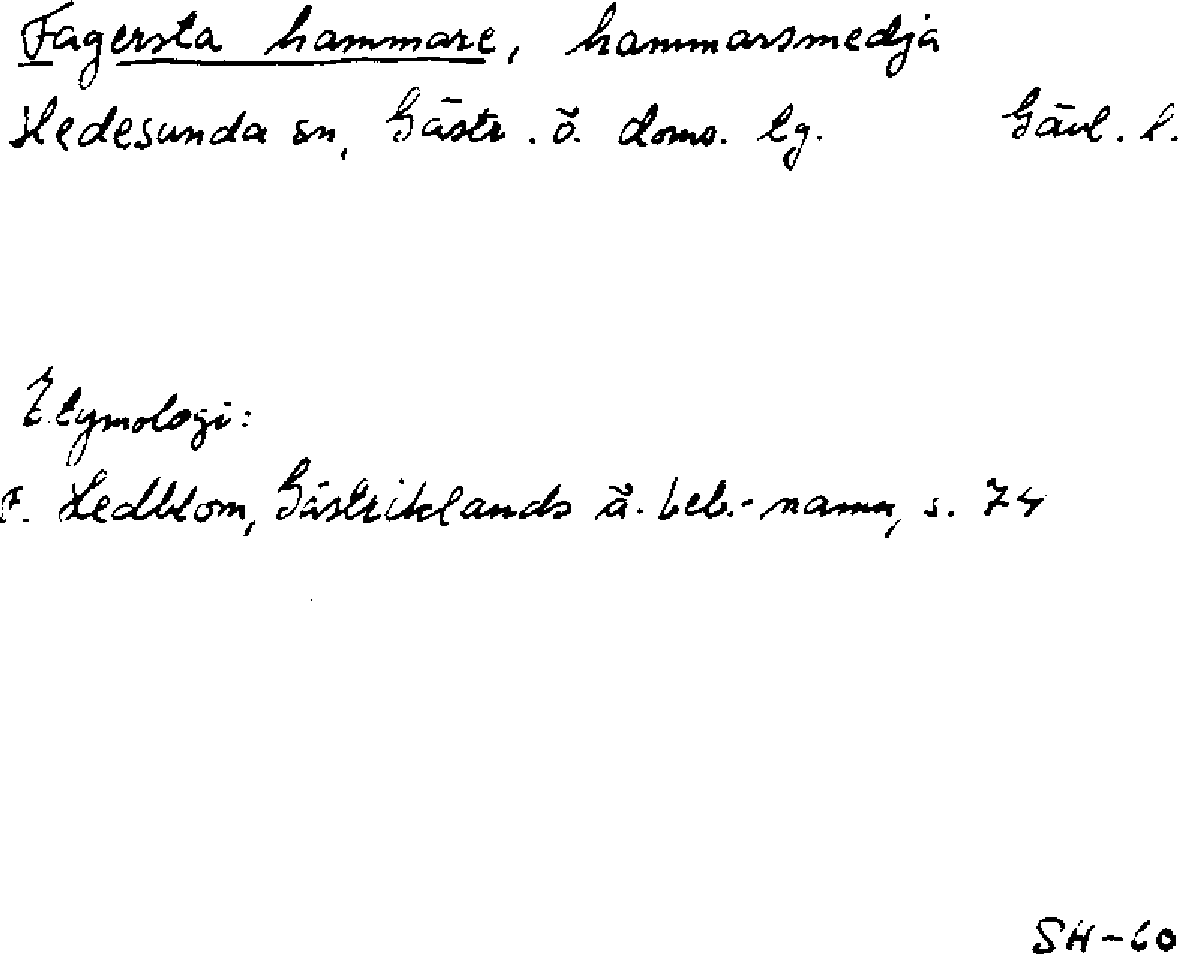 Fagersta hammare, hammarsmedja
Hedesunda sn, Gästr. ö. doms. tg. Gävl. l.
Etymologi:
F. Hedblom, Gästriklands ä. beb.-namn, s. 74
SH-60